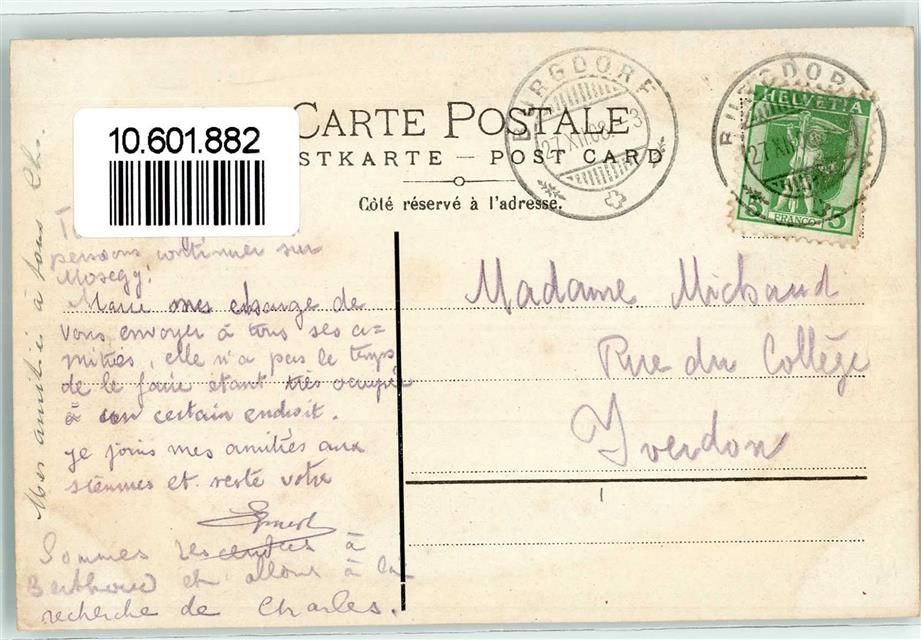 CARTE POSTALE
POSTKARTE — POST CARD
Côté réservé à l'adresse.
10.601.882
BURGDORF
27.XII.08
BURGDORF
27 XII
HELVETIA
5 FRANCO 5
Madame Michaud
Rue du Collège
Yverdon
pensons continuer sur
Mosegg!
Marie me charge de
vous envoyer à tous ses a=
mitiés, elle n'a pas le temps
de le faire étant très occupée
à un certain endroit.
Je joins mes amitiés aux
siennes et reste votre
Ernest
Sommes à
Berthoud et allons à la
recherche de Charles.
Mes amitiés à tous Chs.